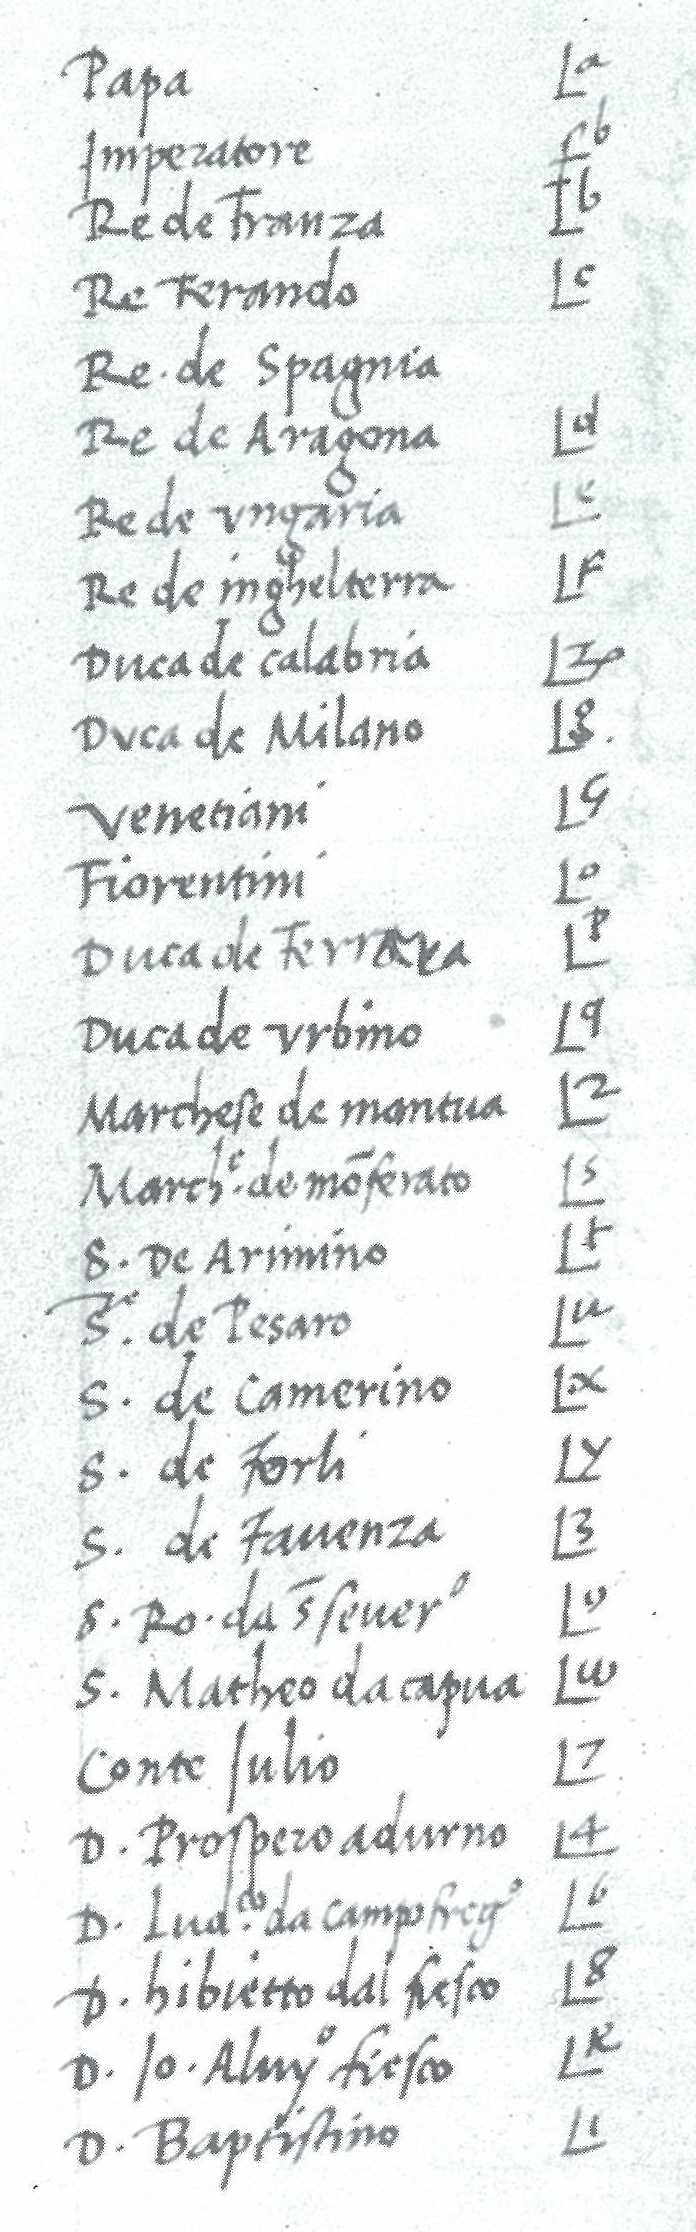 Papa La
Imperatore fb
Re de Franza Lb
Re Ferando Lc
Re. de Spagnia
Re de Aragona Ld
Re de vngaria Le
Re de inghelterra LF
Duca de calabria
Duca de Milano L8.
Venetiani LG
Fiorentini Lo
Duca de Ferrara Lp
Duca de vrbino Lq
Marchese de mantua L2
March.e de mōferato Ls
S. De Arimino Lt
S.re de Pesaro Lu
S. de Camerino Lx
S. de Forli Ly
S. de Fauenza L3
S. Ro. da s̄ seuero Lv
S. Matheo da capua Lw
Conte Julio L7
D. Prospero adurno L4
D. Lud.co da campofrego L6
D. hibietto dal fiesco L8
D. Jo. Aluyo fiesco LK
D. Baptistino Li